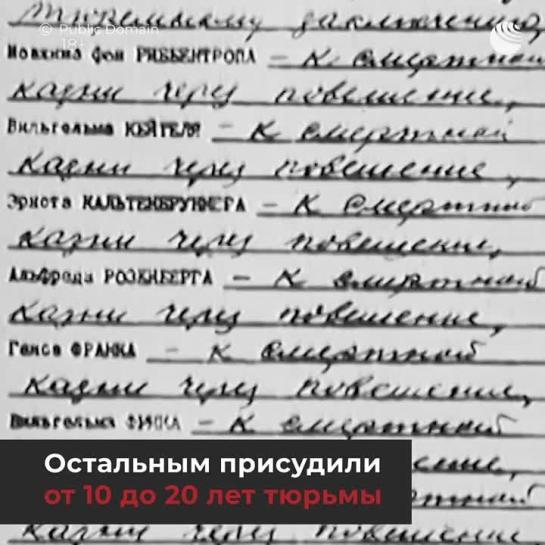 © Public Domain
18+
тюремному заключению,
Иоахима фон РИББЕНТРОПА – к смертной
казни через повешение,
Вильгельма КЕЙТЕЛЯ – к смертной
казни через повешение,
Эрнста КАЛЬТЕНБРУННЕРА – к смертной
казни через повешение,
Альфреда РОЗЕНБЕРГА – к смертной
казни через повешение,
Ганса ФРАНКА – к смертной
казни через повешение,
Вильгельма ФРИКА – к смертной
Остальным присудили
от 10 до 20 лет тюрьмы
казни через повешение